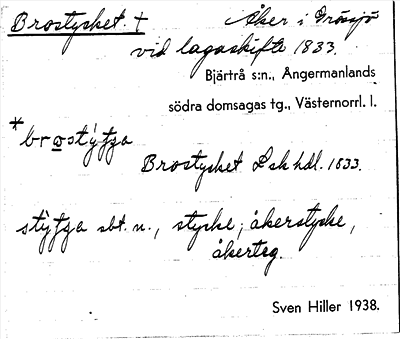 Brostysket. † Åker i Grössjö
vid lagaskifte 1833.
Bjärtrå s:n., Ångermanlands
södra domsagas tg., Västernorrl. l.
*brostýtja
Brostysket Lsk hdl. 1833.
stýtja sbt. n., stycke; åkerstycke,
åkerteg.
Sven Hiller 1938.